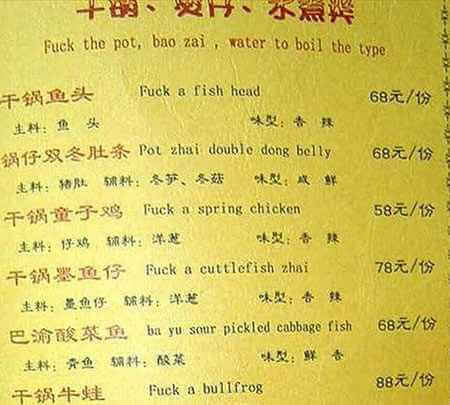 干锅、煲仔、水煮类
Fuck the pot, bao zai , water to boil the type
干锅鱼头 Fuck a fish head 68元/份
主料: 鱼 头 味型: 香 辣
锅仔双冬肚条 Pot zhai double dong belly 68元/份
主料: 猪肚 辅料: 冬笋、冬菇 味型: 咸 鲜
干锅童子鸡 Fuck a spring chicken 58元/份
主料: 仔鸡 辅料: 洋葱 味型: 香 辣
干锅墨鱼仔 Fuck a cuttlefish zhai 78元/份
主料: 墨鱼仔 辅料: 洋葱 味型: 香 辣
巴渝酸菜鱼 ba yu sour pickled cabbage fish 68元/份
主料: 青鱼 辅料: 酸菜 味型: 鲜 香
干锅牛蛙 Fuck a bullfrog 88元/份